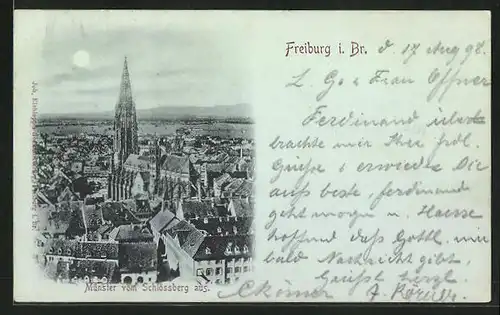 Freiburg i. Br. d 17 Aug 98.
L. Frau Offner
Ferdinand über
brachte mir Ihre frdl.
Grüße & erwiedre Die
aufs beste, ferdinand
geht morgen n. Hause
hoffend daß Gottl. mir
bald Nachricht gibt,
Grüßt herzl.
Münster vom Schlossberg aus.